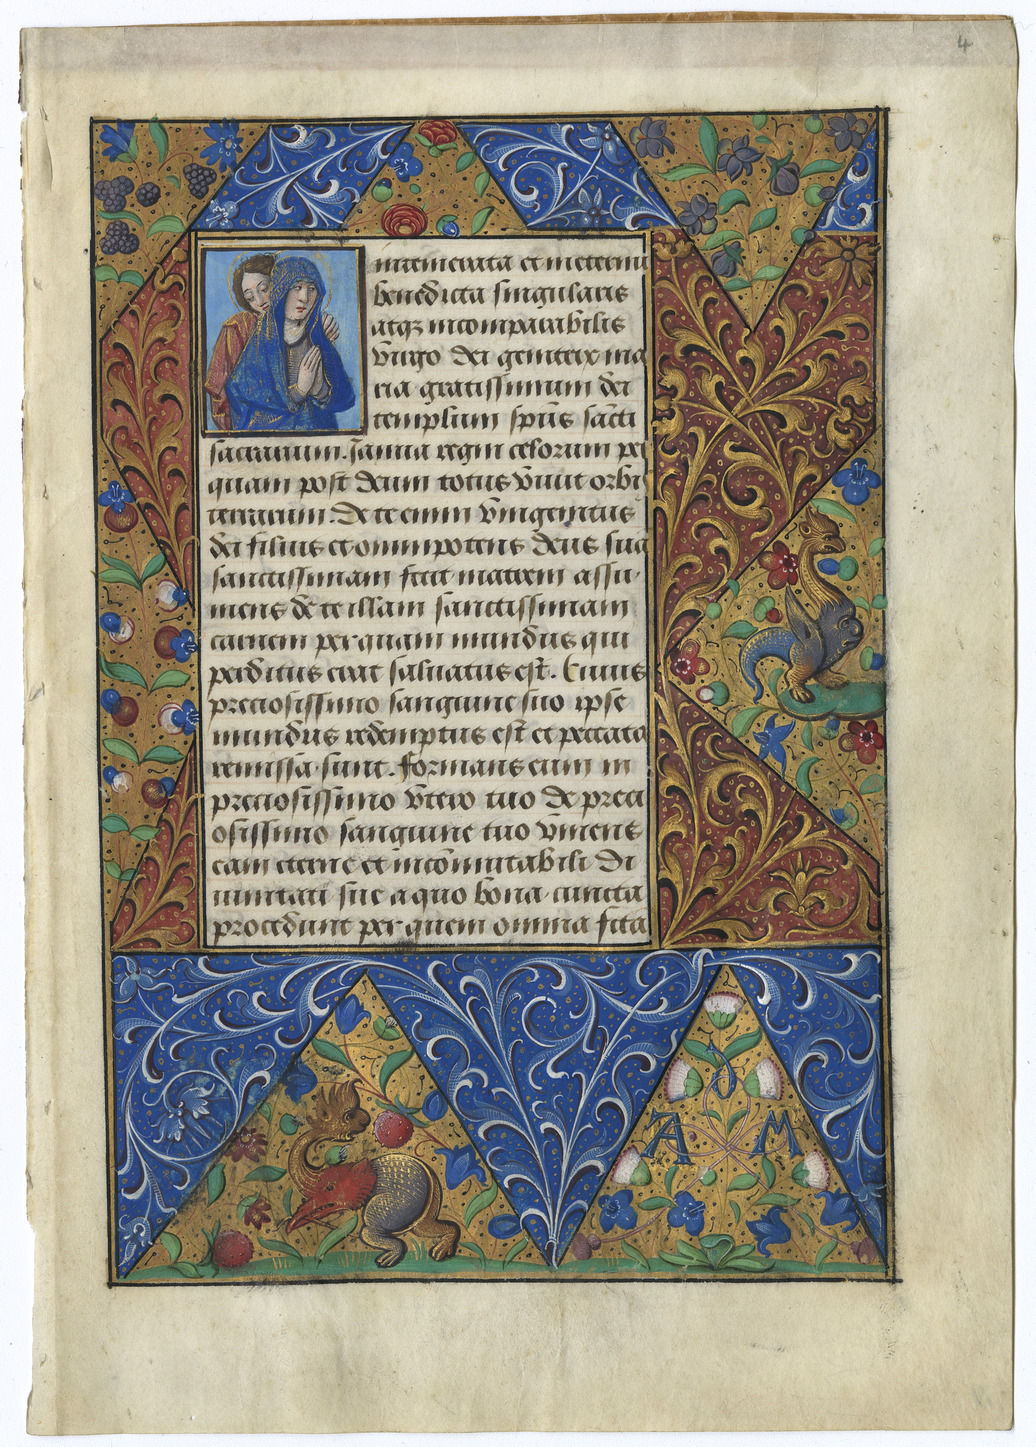 4
intemerata et ineternū
benedicta singularis
atqꝫ incomparabilis
virgo dei genitrix ma
ria gratissimum dei
templum spūs sācti
sacrarium. Janua regni celorum per
quam post deum totus viuit orbis
terrarum. De te enim vnigenitus
dei filius et omnipotens deus suā
sanctissimam fecit matrem assu-
mens de te illam sanctissimam
carnem per quam mundus qui
perditus erat saluatus est. Cuius
preciosissimo sanguine suo ipse
mundus redemptus est et peccata
remissa sunt. formans eum in
preciosissimo vtero tuo de preci
osissimo sanguine tuo vniens
eam eterne et incōmutabili di
uinitati sue a quo bona cuncta
procedunt per quem omnia fc̄ta
A M